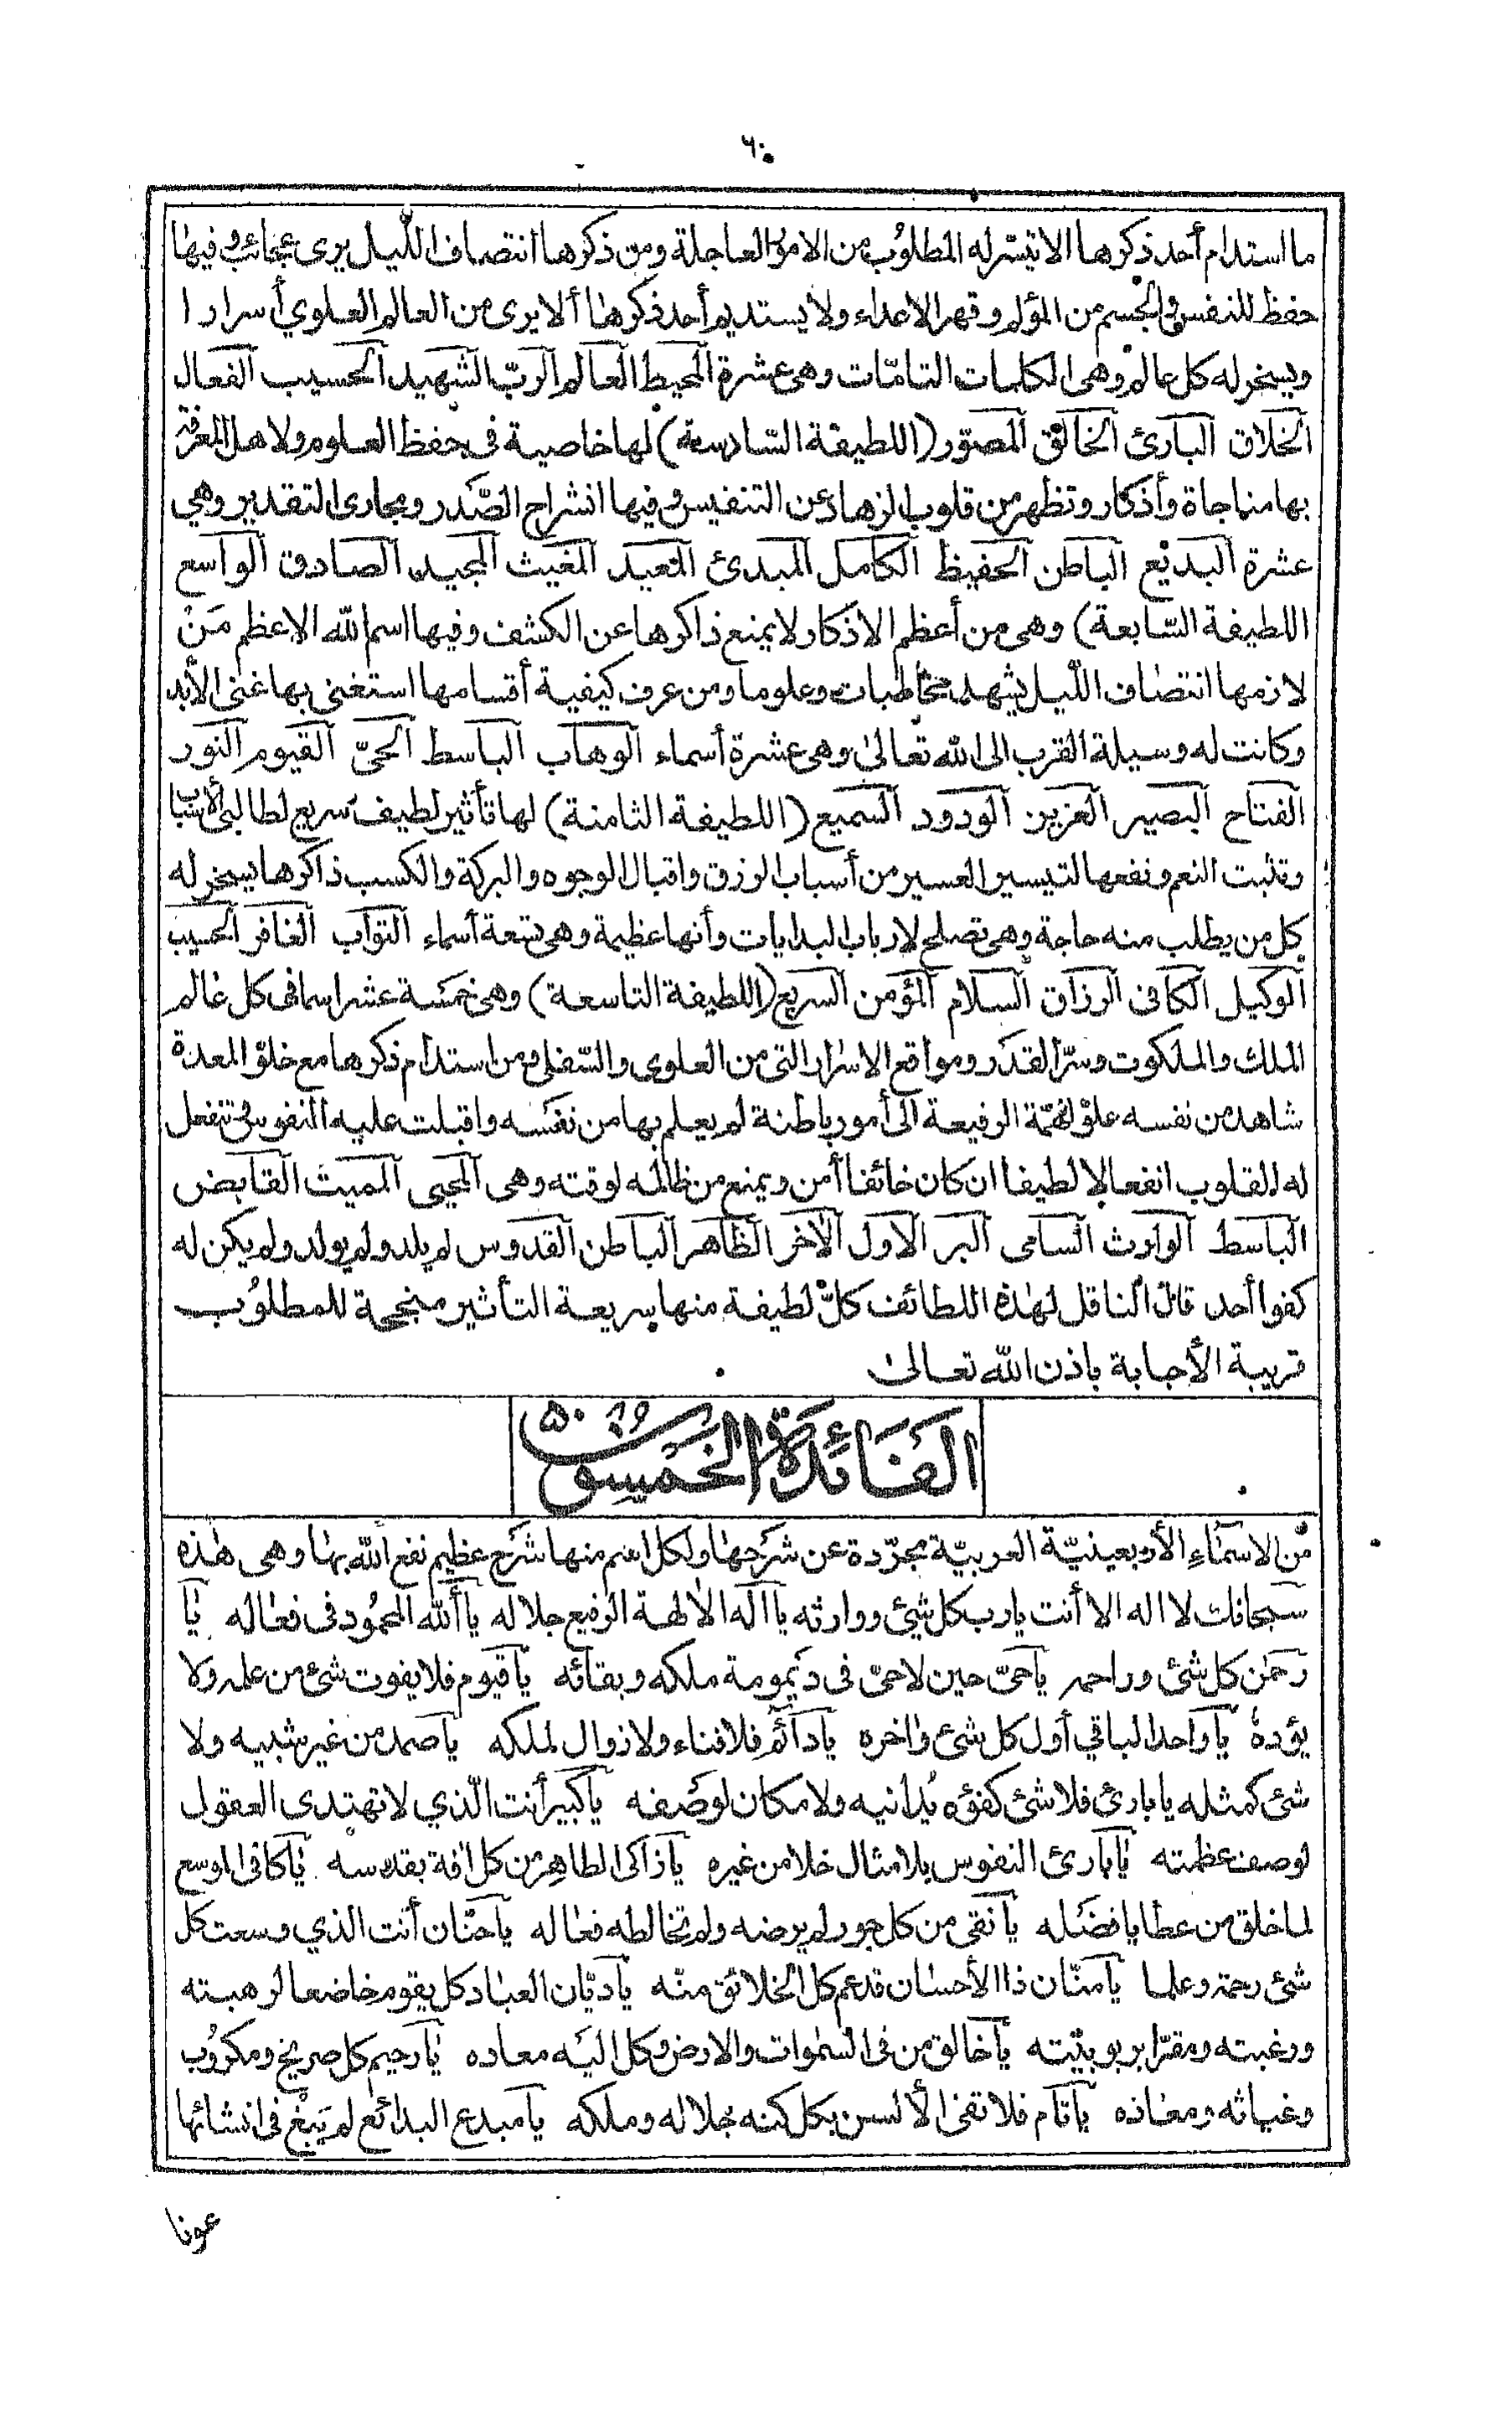 ٦٠
ما استدام أحد ذكرها الا تيسّر له المطلوُب من الامور العاجلة ومن ذكرها انتصاف اللّيل يرى عجائب وفيها
حفظ للنفس في الجسم من المؤلم وقهر الاعداء ولا يستديم أحد ذكرها ألا يرى من العالم العلوي أسرارا
ويسخر له كل عالم وهى الكلمات التامّات وهى عشرة المحيط العالم الربّ الشهيد الحسيب الفعال
الخلاق البارئ الخالق المصوّر (اللطيفة السّادسة) لها خاصية فى حفظ العلوم ولاهل المعرفة
بها مناجاة وأذكار وتظهر من قلوب الزهاد عن التنفيس وفيها انشراح الصّدر ومجارى التقدير وهي
عشرة البديع الباطن الحفيظ الكامل المبدئ المعيد المغيث المجيد الصادق الواسع
اللطيفة السّابعة) وهى من أعظم الاذكار ولا يمنع ذاكرها عن الكشف وفيها اسم الله الاعظم مَنْ
لازمها انتصاف اللّيل يشهد مخاطبات وعلوما ومن عرف كيفية أقسامها استغنى بها غنى الأبد
وكانت له وسيلة القرب الى الله تعالىٰ وهى عشرة أسماء الوهاب الباسط الحىّ القيوم النور
الفتاح البصير العزيز الودود السميع (اللطيفة الثامنة) لها تأثير لطيف سريع لطالبى الأسباب
وتثبت النعم ونفعها لتيسير العسير من أسباب الرزق واقبال الوجوه والبركة والكسب ذاكرها يسخر له
كل من يطلب منه حاجة وهى تصلح لارباب البدايات وأنها عظيمة وهى تسعة أسماء التوّاب الغافر الحسيب
الوكيل الكافى الرزاق السلام المؤمن السريع (اللطيفة التاسعة) وهى خمسة عشر اسما فى كل عالم
الملك والملكوت وسرّ القدر ومواقع الاسرار التى من العلوى والسّفلى ومن استدام ذكرها مع خلوّ المعدة
شاهد من نفسه علوّ الهمّة الرفيعة الى أمور باطنة لم يعلم بها من نفسه واقبلت عليه النفوس وتنفعل
له القلوب انفعالا لطيفا ان كان خائفا أمن ويمنع من ظالمه لوقته وهى المحيى المميت القابض
الباسط الوارث السامى البر الاول الآخر الظاهر الباطن القدوس لم يلد ولم يولد ولم يكن له
كفوا أحد قال الناقل لهٰذه اللطائف كلّ لطيفة منها سريعة التأثير منجحة للمطلوُب
قريبة الأجابة باذن الله تعالىٰ
الفَائدة الخمسون ٥٠
من الاسمآء الأربعينيّة العربيّة مجرّدة عن شرحها ولكل اسم منها شرح عظيم نفع الله بها وهى هٰذه
سبحانك لا اله الا أنت يا رب كل شئ ووارثه يا آله الآلهة الرفيع جلاله يا ألله المحمُود فى فعاله يا
رحمٰن كل شئ وراحمه يا حىّ حين لا حىّ فى ديمومة ملكه وبقائه يا قيوم فلا يفوت شئ من علمه ولا
يؤده يا واحد الباقي أول كل شئ وآخره يا دآئم فلا فناء ولا زوال لملكه يا صمد من غير شبيه ولا
شئ كمثله يا بارئ فلا شئ كفؤه يُدانيه ولا مكان لوصفه يا كبير أنت الّذي لا تهتدى العقول
لوصف عظمته يا بارئ النفوس بلا مثال خلا من غيره يا زاكى الطاهر من كل آفة بقدسه يا كافى الموسع
لما خلق من عطايا فضله يا نقى من كل جور لم يرضه ولم تخالطه فعاله يا حنّان أنت الذي وسعت كل
شئ رحمة وعلما يا منّان ذا الأحسان قد عم كل الخلائق منّه يا ديّان العباد كل يقوم خاضعا لرهبته
ورغبته ومقرّا بربوبيّته يا خالق من فى السّمٰوات والارض وكل اليه معاده يا رحيم كل صريخ ومكرُوب
وغياثه ومعاذه يا تآم فلا تفى الألسن بكل كنه جلاله وملكه يا مبدع البدائع لم يَبْغِ فى انشائها
عونا